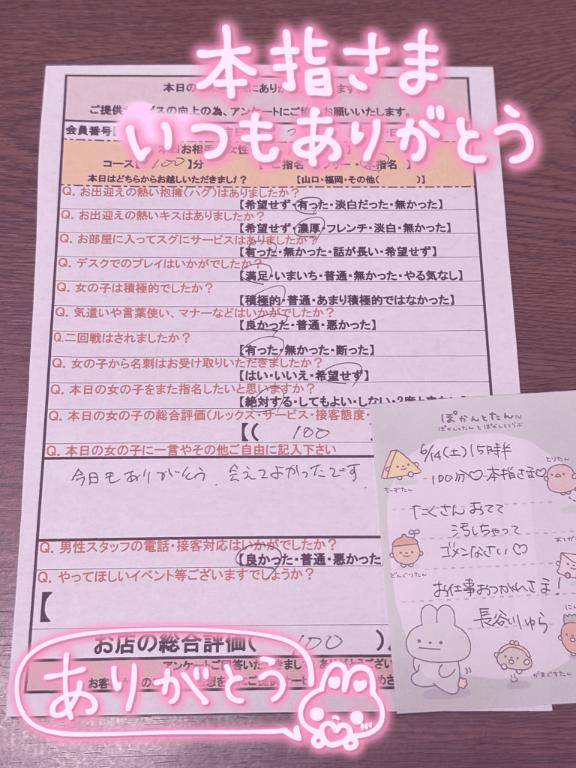 本指さま
いつもありがとう
本日の
にあり
ます
ご提供
ビスの向上の為、アンケートにご
お願いいたします。
会員番号【
本日お相
コース【 100 】分
本指名
本日はどちらからお越しいただきました!?
【山口・福岡・その他( )】
Q. お出迎えの熱い抱擁(ハグ)はありましたか?
【希望せず・有った・淡白だった・無かった】
Q. お出迎えの熱いキスはありましたか?
【希望せず・濃厚・フレンチ・淡白・無かった】
Q. お部屋に入ってスグにサービスはありましたか?
【有った・無かった・話が長い・希望せず】
Q. デスクでのプレイはいかがでしたか?
【満足・いまいち・普通・無かった・やる気なし】
Q. 女の子は積極的でしたか?
【積極的・普通・あまり積極的ではなかった】
Q. 気遣いや言葉使い、マナーなどはいかがでしたか?
【良かった・普通・悪かった】
Q.二回戦はされましたか?
【有った・無かった・断った】
Q. 女の子から名刺はお受け取りいただきましたか?
【はい・いいえ・希望せず】
Q. 本日の女の子をまた指名したいと思いますか?
【絶対する・してもよい・しない・2度と
Q. 本日の女の子の総合評価(ルックス・サービス・接客態度・
【( 100 )
Q. 本日の女の子に一言やその他ご自由に記入下さい
今日もありがとう 会えてよかったです
Q. 男性スタッフの電話・接客対応はいかがでしたか?
【良かった・普通・悪かった
Q. やってほしいイベント等ございますでしょうか?
【
お店の総合評価( 100 )
アンケートご回答いただきまして
ありがとうござい
お客
ありがとう
ぽかんとたん
ぽかんとたんとぽかんとらいふ
6/14(土)15時半
とりたん
100分♡本指さま♡
ちーずたん
たくさんおてて
汚しちゃって
ゴメンなさい♡
どんぐりたん
お仕事おつかれさま!
長谷川ゆら
かまぼすたん